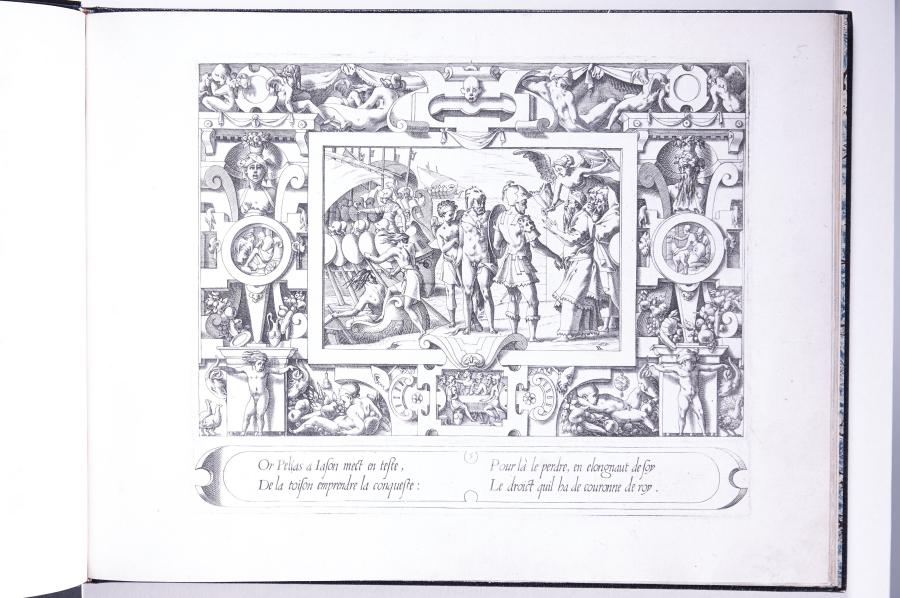 5
(5)
Or Pelias a Iason mect en teste,
De la toison emprendre la conqueste:
Pour là le perdre, en elongnaut de soy
Le droict quil ha de couronne de roy.